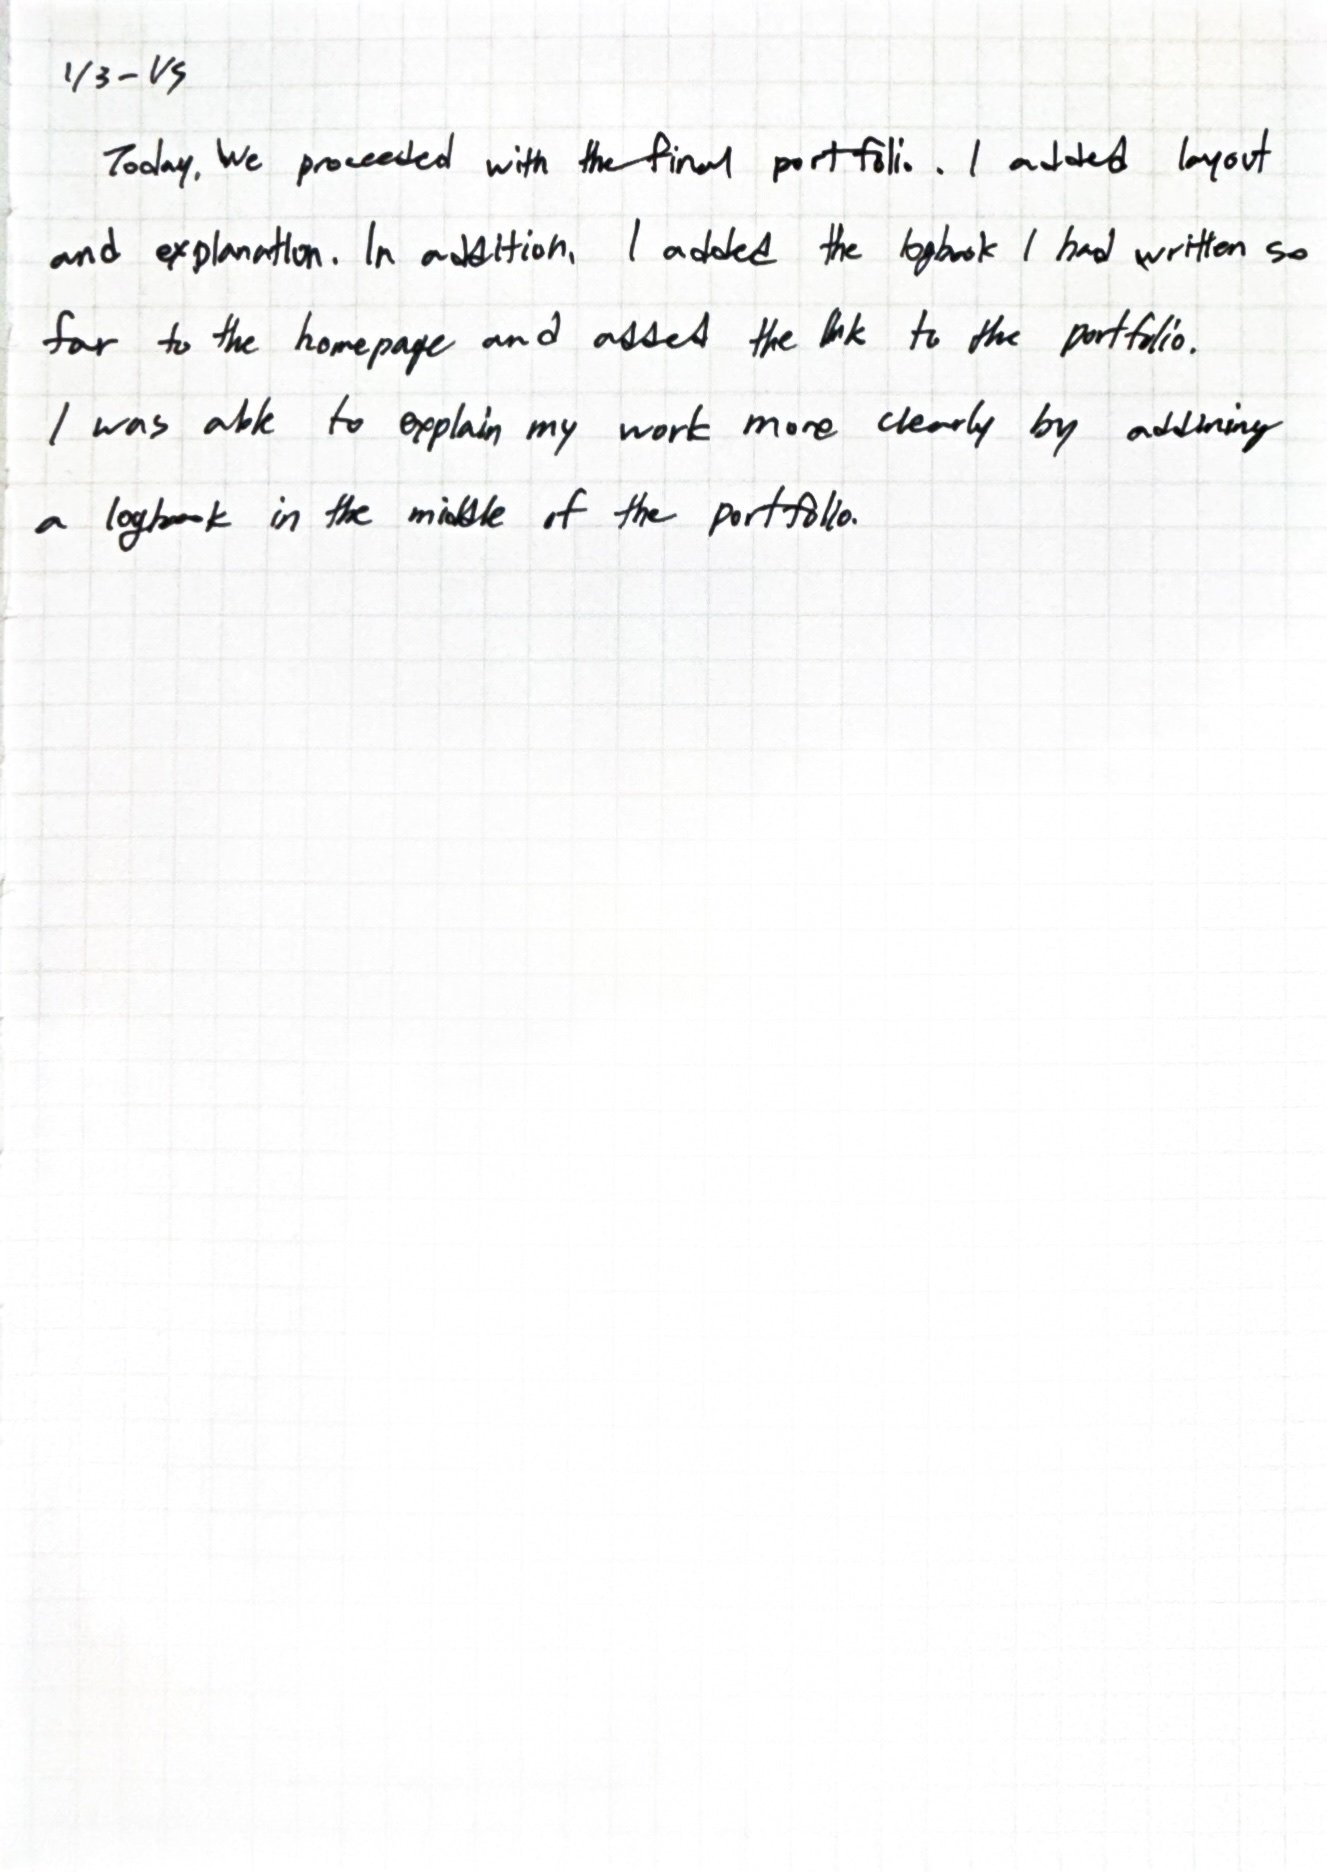 1/3-1/5
Today, We proceeded with the final portfolio. I added layout
and explanation. In addition, I added the logbook I had written so
far to the homepage and added the link to the portfolio.
I was able to explain my work more clearly by
a logbook in the middle of the portfolio.